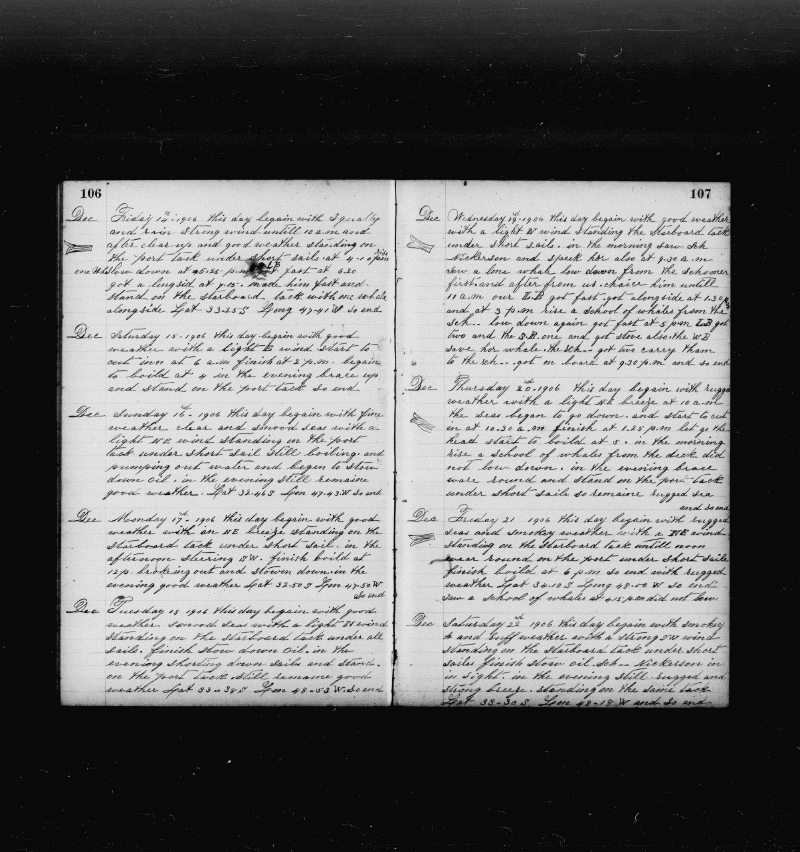 106
Dec Friday 14th - 1906 this day begain with Squally
and rain Strong wind untill 10 a.m and
after clear up and good weather standing on
the port tack under short sails. at 4-10 pm rise
one whale low down at 5.25 p.m L.B got fast at 6.20
got a lingsid at 7.15. made him fast and
stand on the starboard tack with one whale
alongside Lat 33-25 S Long 47-41 W So end
Dec Saturday 15. 1906 this day begain with good
weather with a light E wind Start to
cut inn at 5 a.m finish at 2 p.m. begain
to boild at 4 in the evening brace up
and stand on the port tack So end
Dec Sunday 16 - 1906 this day begain with fine
weather clear and smood seas with a
light NE wind standing on the port
tack under short sail Still boiling. and
pumping out water and begen to Stow
down oil. in the evening still remaine
good weather. Lat 32-46 S Lon 47-43 W So end
Dec Monday 17th - 1906 this day begain with good
weather with an NE breeze standing on the
starboard tack under short sail. in the
afternoon stering SW. finish boild at
12 p. broking out and stowen down. in the
evening good weather Lat 32.50 S Lon 47-50 W
So end
Dec Tuesday 18 1906 this day begain with good
weather smood seas with a light N wind
standing on the starboard tack under all
sails. finish stow down oil. in the
evening shorting down sails and stand.
on the port tack still remaine good
weather Lat 33-38 S Lon 48-53 W. So end
107
Dec Wednesday 19th - 1906 this day begain with good weather
with a light N wind standing the Starboard tack
under short sail. in the morning saw Sch
Nickerson and speck her also at 9.30 a.m
saw a lone whale low down from the schooner
first and after from us. chaice him untill
11 a.m our L.B got fast. got alongside at 1.30 p
and at 3 p.m rise a school of whales from the
Sch-- low down again got fast at 5 p.m L.B got
two and the S.B. one and got stove also the W B
save her whale. the sch-- got two carry tham
to the sch--. got on board at 9.30 p.m and so end
Dec Thursday 20th 1906 this day begain with rugged
weather with a light NE breeze at 10 a.m
the seas began to go down. and start to cut
in at 10.30 a.m finish at 1.25 p.m let go the
head start to boild at 5. in the morning
rise a school of whales from the deck did
not low down. in the evening brace
ware round and stand on the port tack
under short sails so remaine rugged sea
and so end
Dec Friday 21 1906 this day begain with rugged
seas and smokey weather with a NE wind
standing on the Starboard tack untill noon
wear round on the port under short sails
finish boild at 6 p.m So end with rugged
weather Lat 34.10 S Long 48-00 W So end
saw a school of whales at 4.15 p.m did not low
Dec Saturday 22nd 1906 this day begain with smokey
and weather with a strong SW wind
standing on the Starboard tack under short
sailes finish stow oil. Sch-- Nickerson in
in sight. in the evening still rugged and
strong breeze. standing on the same tack
Lat 33-30 S Lon 48-18 W and So end